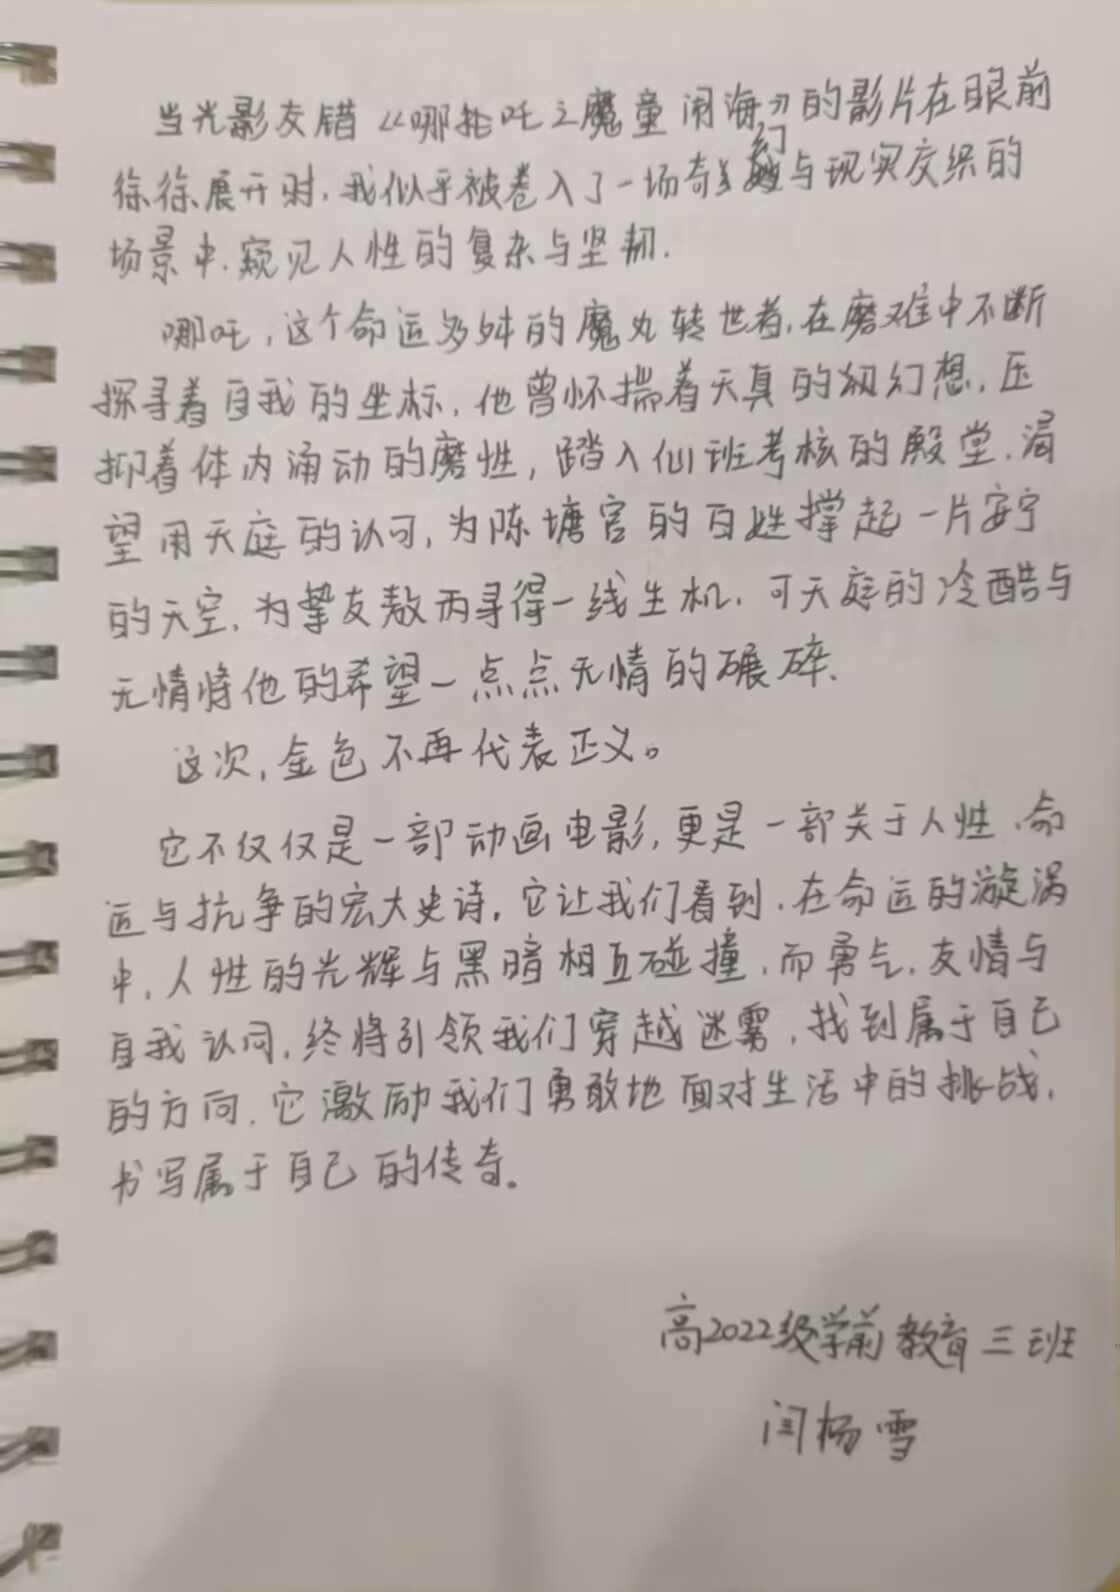 当光影交错《哪扥吒之魔童闹海》的影片在眼前
徐徐展开时,我似乎被卷入了一场奇幻与现实交织的
场景中.窥见人性的复杂与坚韧.
哪吒,这个命运多舛的魔丸转世者,在磨难中不断
探寻着自我的坐标,他曾怀揣着天真的幻想,压
抑着体内涌动的磨性,踏入仙班考核的殿堂.渴
望用天庭的认可,为陈塘官的百姓撑起一片安宁
的天空,为挚友敖丙寻得一线生机.可天庭的冷酷与
无情将他的希望一点点无情的碾碎、
这次,金色不再代表正义。
它不仅仅是一部动画电影,更是一部关于人性、命
运与抗争的宏大史诗,它让我们看到,在命运的漩涡
中,人性的光辉与黑暗相互碰撞,而勇气,友情与
自我认同,终将引领我们穿越迷雾,找到属于自己
的方向.它激励我们勇敢地面对生活中的挑战,
书写属于自己的传奇。
高2022级学前教育三班
闫杨雪